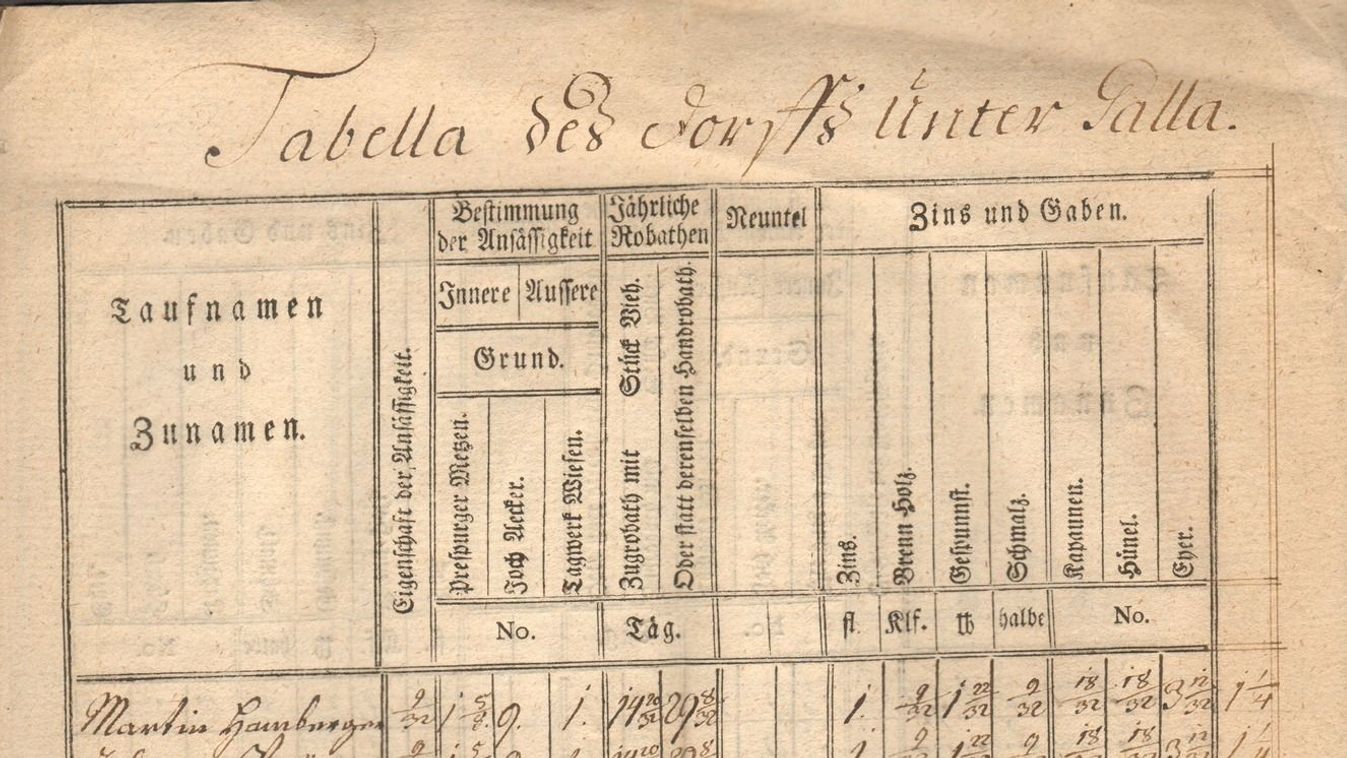 Tabella des Dorffs Unter Galla.
Taufnamen
und
Zunamen.
Eigenschaft der Ansässigkeit.
Bestimmung
der Ansässigkeit
Innere Aussere
Grund.
Prespurger Metzen.
Joch Aecker.
Tagwerk Wiesen.
No.
Jährliche
Robathen
Zugrobath mit Stück Vieh.
Oder statt derenselben Handrobath.
Täg.
Neuntel
Zins und Gaben.
Zins.
Brenn Holz.
Gespunnst.
Schmalz.
Kapaunen.
Hünel.
Eyer.
fl. Klf. ℔ halbe No.
Martin Hamberger 9/32 1 5/8 9. 1. 14 20/32 29 8/32 1. 9/32 1 22/32 9/32 18/32 18/32 3 12/32 1 1/4